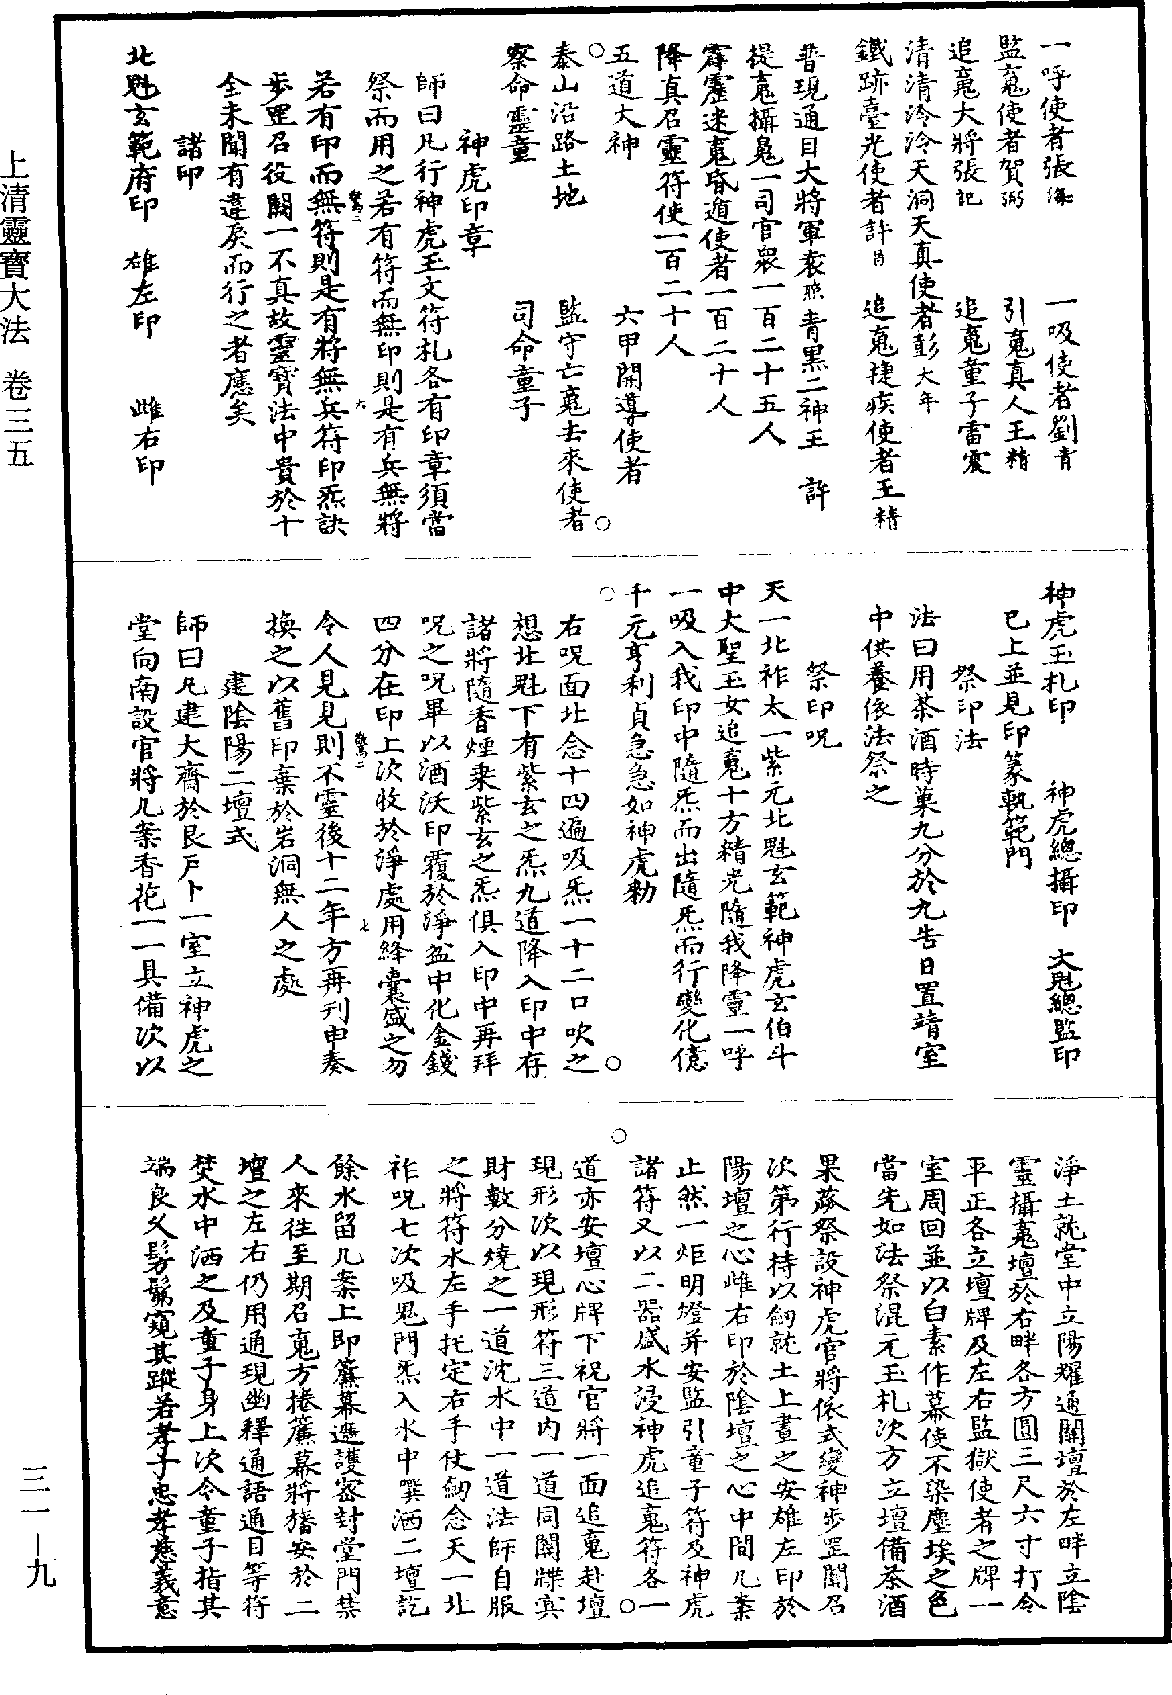 上清靈寶大法　卷三五
三一—九
一呼使者張緣　一吸使者劉青
監䰟使者賀粥　引䰟真人王精
追䰟大將張記　追䰟童子雷震
清清泠泠天洞天真使者彭大年
鐵跡臺光使者許昌　追䰟捷疾使者王精
普現通目大將軍袁熙　青黑二神王　許
提䰟攝鬼一司官眾一百二十五人
霹靂迷䰟昏遁使者一百二十人
降真召靈符使一百二十人
五道大神　六甲開導使者
泰山沿路土地　監守亡䰟去來使者
察命靈童　司命童子
神虎印章
師曰凡行神虎玉文符札各有印章須當
祭而用之若有符而無印則是有兵無將
若有印而無符則是有將無兵符印炁訣
步罡召役闕一不真故靈寶法中貴於十
全未聞有違戾而行之者應矣
諸印
北魁玄範府印　雄左印　雌右印
神虎玉札印　神虎總攝印　大魁總監印
已上並見印篆軌範門
祭印法
法曰用茶酒時菓九分於九告日置靖室
中供養依法祭之
祭印呪
天一北祚太一紫元北魁玄範神虎玄伯斗
中大聖玉女追䰟十方精光隨我降靈一呼
一吸入我印中隨炁而出隨炁而行變化億
千元亨利貞急急如神虎勑
右呪面北念十四遍吸炁一十二口吹之
想北魁下有紫玄之炁九道降入印中存
諸將隨香煙乘紫玄之炁俱入印中再拜
呪之呪畢以酒沃印覆於淨盆中化金錢
四分在印上次收於淨處用絳囊盛之勿
令人見見則不靈後十二年方再刋申奏
換之以舊印棄於岩洞無人之處
建陰陽二壇式
師曰凡建大齋於艮戶卜一室立神虎之
堂向南設官將几案香花一一具備次以
淨土就堂中立陽耀通關壇於左畔立陰
靈攝䰟壇於右畔各方圓三尺六寸打令
平正各立壇牌及左右監獄使者之牌一
室周回並以白素作幕使不染塵埃之色
當先如法祭混元玉札次方立壇備茶酒
果蔬祭設神虎官將依式變神步罡關召
次第行持以劒就土上畫之安雄左印於
陽壇之心雌右印於陰壇之心中間几案
止然一炬明燈并安監引童子符及神虎
諸符又以二器盛水浸神虎追䰟符各一
道亦安壇心牌下祝官將一面追䰟赴壇
現形次以現形符三道内一道同關牒寘
財數分燒之一道沈水中一道法師自服
之將符水左手托定右手仗劒念天一北
祚呪七次吸鬼門炁入水中噀洒二壇訖
餘水留几案上即簾幕遮護密封堂門禁
人來往至期召䰟方捲簾幕將旛安於二
壇之左右仍用通現幽釋通語通目等符
焚水中洒之及童子身上次令童子指其
端良久髣髴窺其蹤若孝子忠孝慈義意